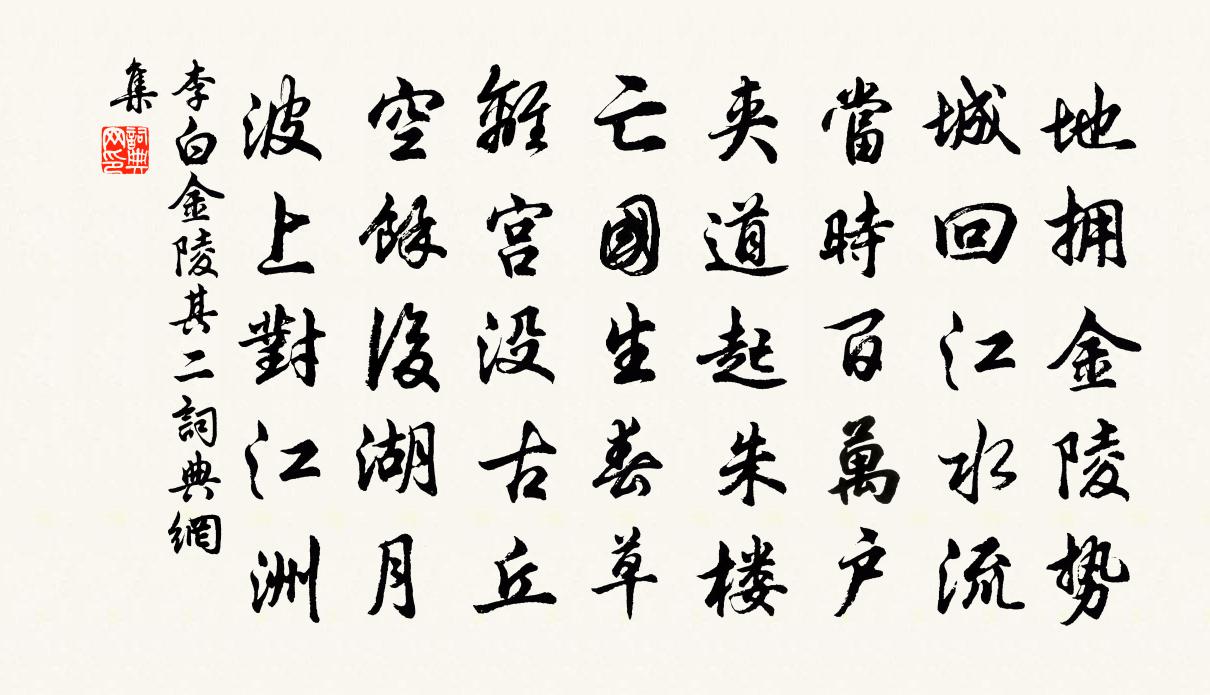 地拥金陵势
城回江水流
當時百萬户
夹道起朱楼
亡國生春草
離宫没古丘
空餘後湖月
波上對江洲
李白金陵其二詞典網
集
詞典网印